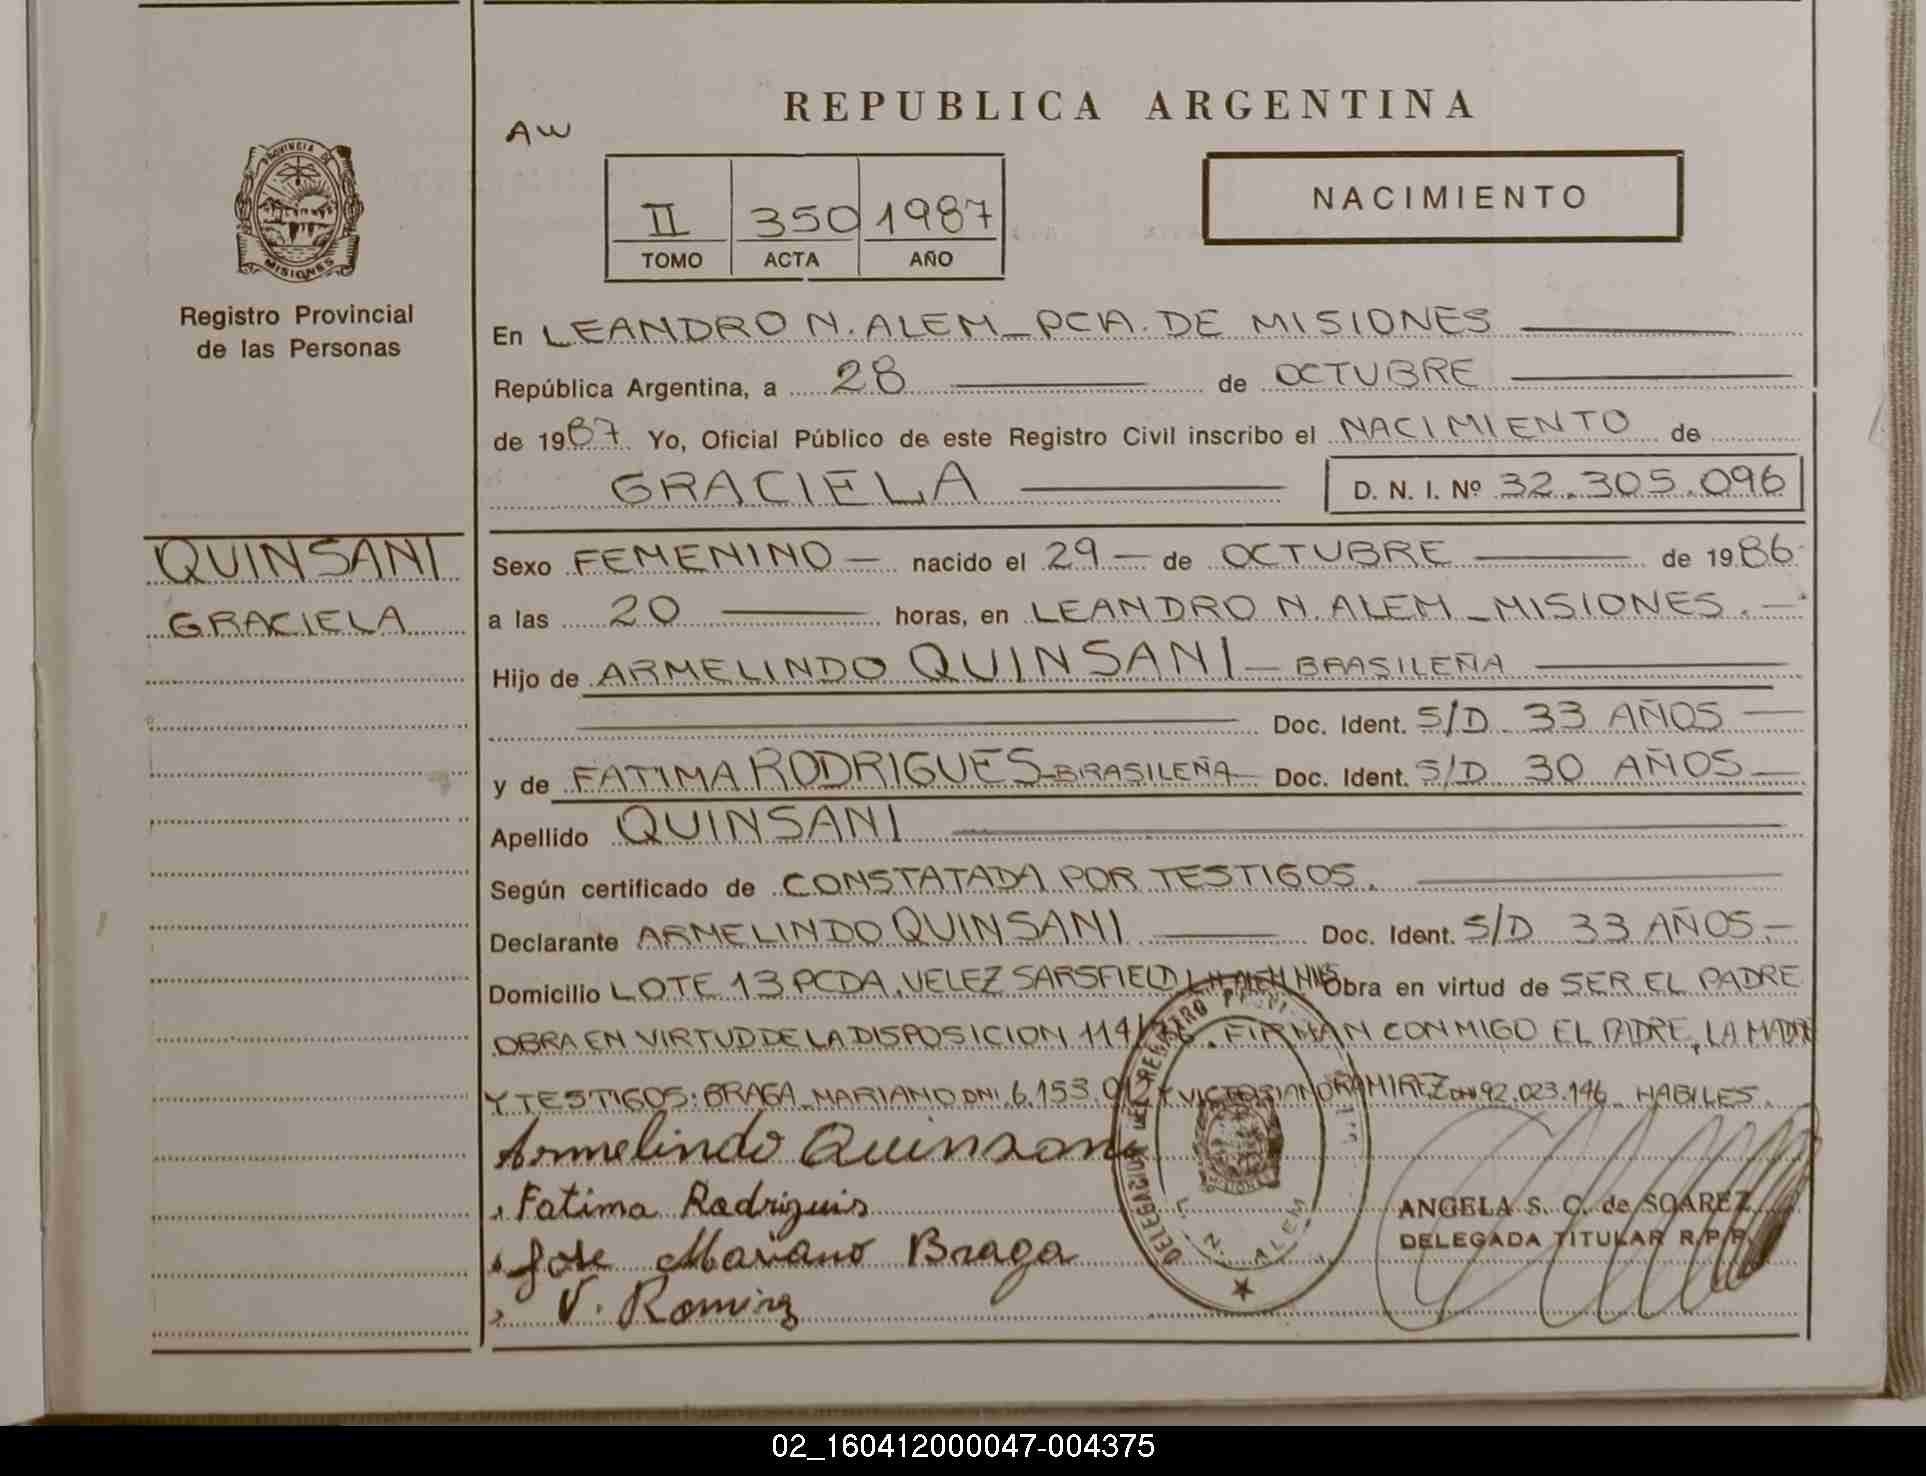 REPUBLICA ARGENTINA
AW
PROVINCIA DE
MISIONES
Registro Provincial
de las Personas
II 350 1987
TOMO ACTA AÑO
NACIMIENTO
En LEANDRO N. ALEM_PCIA. DE MISIONES
República Argentina, a 28 de OCTUBRE
de 1987 Yo, Oficial Público de este Registro Civil inscribo el NACIMIENTO de
GRACIELA D. N. I. Nº 32.305.096
QUINSANI
GRACIELA
Sexo FEMENINO — nacido el 29 — de OCTUBRE de 1986
a las 20 horas, en LEANDRO N. ALEM_MISIONES.—
Hijo de ARMELINDO QUINSANI — BRASILEÑA
Doc. Ident. S/D 33 AÑOS
y de FATIMA RODRIGUES-BRASILEÑA Doc. Ident. S/D 30 AÑOS
Apellido QUINSANI
Según certificado de CONSTATADA POR TESTIGOS.
Declarante ARMELINDO QUINSANI Doc. Ident. S/D 33 AÑOS.-
Domicilio LOTE 13 PCDA. VELEZ SARSFIELD L.N.ALEM MIS Obra en virtud de SER EL PADRE
OBRA EN VIRTUD DE LA DISPOSICION. FIRMAN CONMIGO EL PADRE, LA MADRE
Y TESTIGOS: BRAGA MARIANO DNI. 6.153.012 Y VICTORIANO RAMIREZ DNI 92.023.146 HABILES.
Armelindo Quinsani
Fatima Rodriguis
Jose Mariano Braga
V. Ramirez
DELEGACION DEL REGISTRO
L. N. ALEM
ANGELA S. C. de SOAREZ
DELEGADA TITULAR R.P.P.
02_160412000047-004375